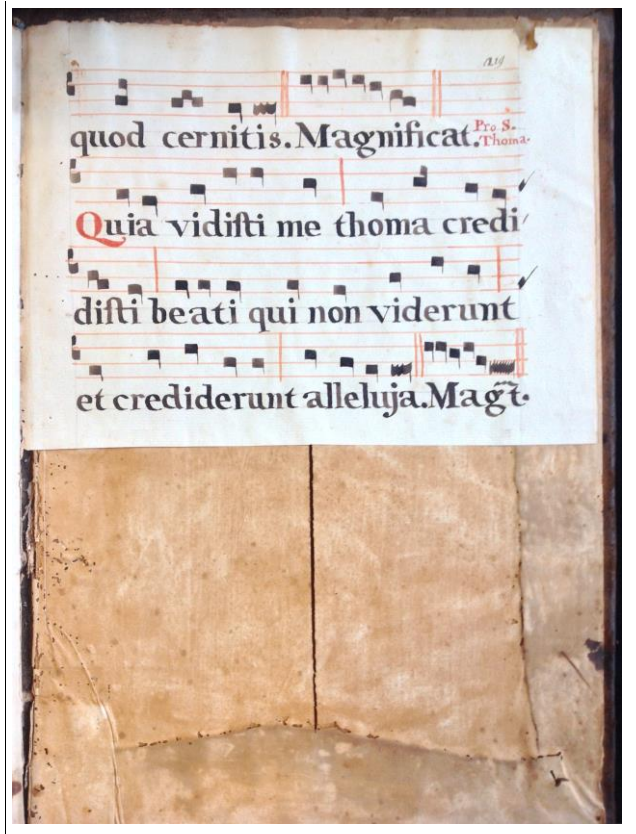 219
quod cernitis. Magnificat. Pro S.
Thoma.
Quia vidisti me thoma credi
disti beati qui non viderunt
et crediderunt alleluja. Mag̃t.